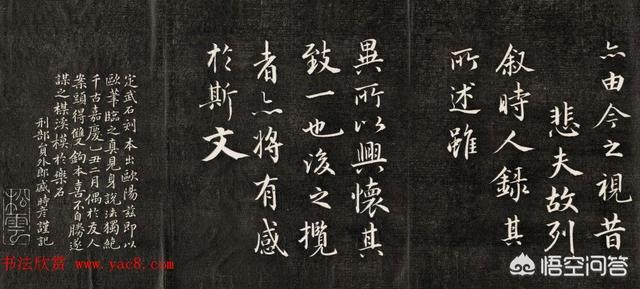 亦由今之視昔
悲夫故列
叙時人錄其
所述雖
異所以興懷其
致一也後之攬
者亦將有感
於斯文
定武石刻本出歐陽茲即以
歐筆臨之真見身說法獨絶
千古嘉慶乙丑二月偶於友人
案頭得雙鉤本喜不自勝遂
謀之楳溪模於樂石
刑部員外郎戚時彥謹記
松雲
书法欣赏 www.yac8.com
悟空问答